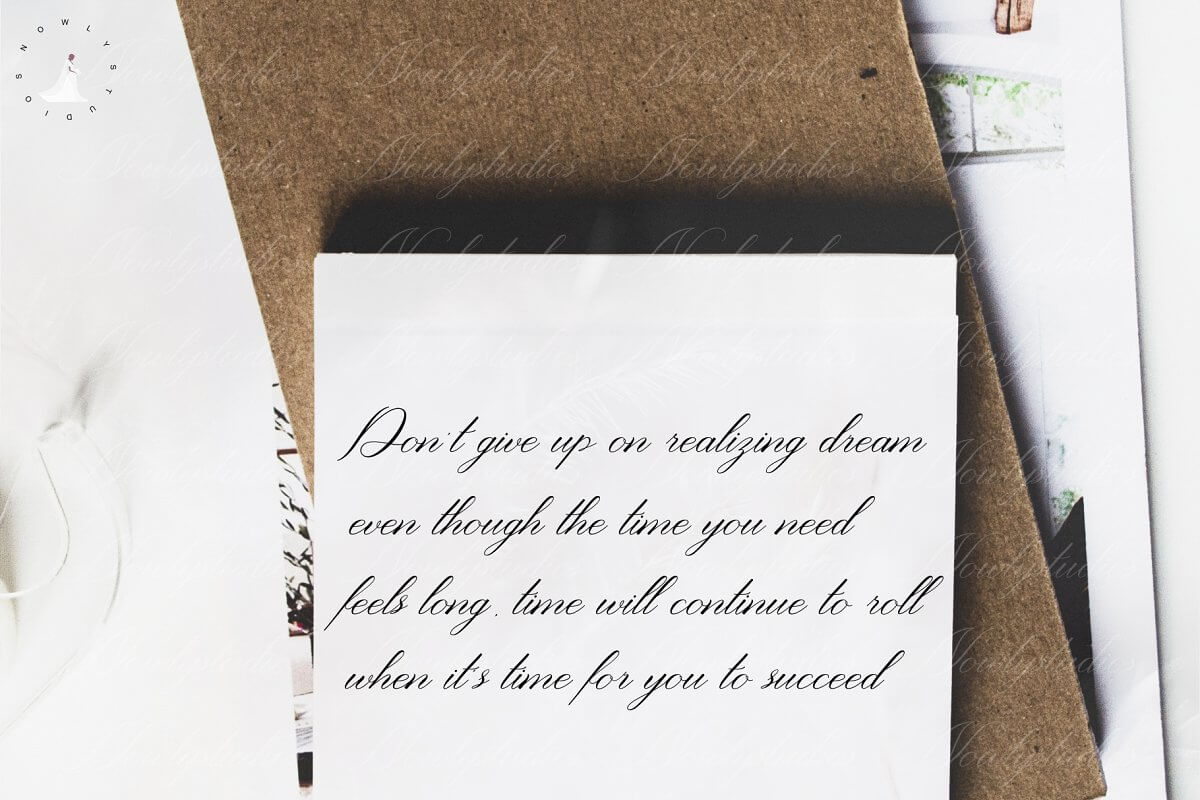 NOWLYSTUDIOS
Don't give up on realizing dream
even though the time you need
feels long, time will continue to roll
when it's time for you to succeed
Nowlystudios